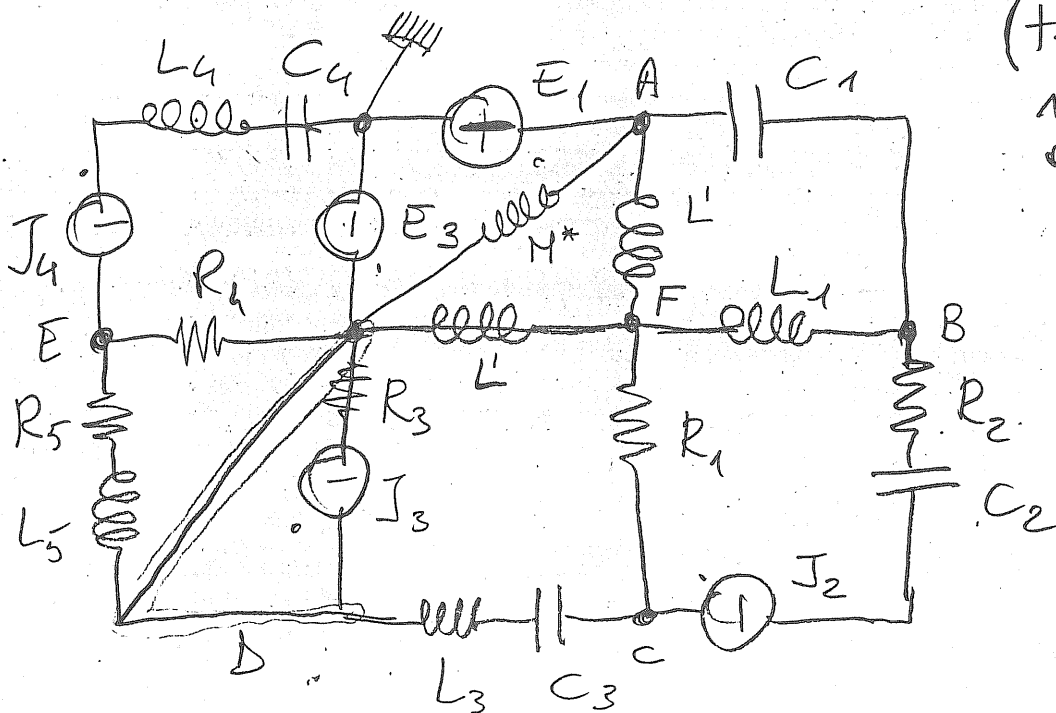 (t.
L4 C4 E1 A C1
J4 E3 M* L'
R4 F L1
E B
L'
R5 R3 R1 R2
L5 J3 C2
J2
D C
L3 C3